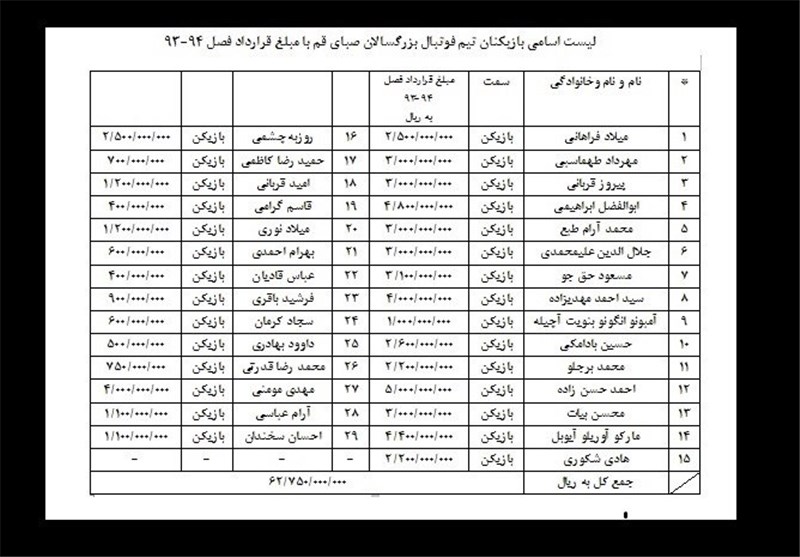 لیست اسامی بازیکنان تیم فوتبال بزرگسالان صبای قم با مبلغ قرارداد فصل ۹۴-۹۳
* نام و نام وخانوادگی سمت مبلغ قرارداد فصل
۹۳-۹۴
به ریال
۱ میلاد فراهانی بازیکن ۲/۵۰۰/۰۰۰/۰۰۰ ۱۶ روزبه چشمی بازیکن ۲/۵۰۰/۰۰۰/۰۰۰
۲ مهرداد طهماسبی بازیکن ۳/۰۰۰/۰۰۰/۰۰۰ ۱۷ حمید رضا کاظمی بازیکن ۷۰۰/۰۰۰/۰۰۰
۳ پیروز قربانی بازیکن ۳/۰۰۰/۰۰۰/۰۰۰ ۱۸ امید قربانی بازیکن ۱/۲۰۰/۰۰۰/۰۰۰
۴ ابوالفضل ابراهیمی بازیکن ۴/۸۰۰/۰۰۰/۰۰۰ ۱۹ قاسم گرامی بازیکن ۴۰۰/۰۰۰/۰۰۰
۵ محمد آرام طبع بازیکن ۳/۰۰۰/۰۰۰/۰۰۰ ۲۰ میلاد نوری بازیکن ۱/۲۰۰/۰۰۰/۰۰۰
۶ جلال الدین علیمحمدی بازیکن ۳/۰۰۰/۰۰۰/۰۰۰ ۲۱ بهرام احمدی بازیکن ۶۰۰/۰۰۰/۰۰۰
۷ مسعود حق جو بازیکن ۳/۱۰۰/۰۰۰/۰۰۰ ۲۲ عباس قادیان بازیکن ۴۰۰/۰۰۰/۰۰۰
۸ سید احمد مهدیزاده بازیکن ۴/۰۰۰/۰۰۰/۰۰۰ ۲۳ فرشید باقری بازیکن ۹۰۰/۰۰۰/۰۰۰
۹ آمبونو انگونو بنویت آچیله بازیکن ۱/۰۰۰/۰۰۰/۰۰۰ ۲۴ سجاد کرمان بازیکن ۶۰۰/۰۰۰/۰۰۰
۱۰ حسین بادامکی بازیکن ۲/۶۰۰/۰۰۰/۰۰۰ ۲۵ داوود بهادری بازیکن ۵۰۰/۰۰۰/۰۰۰
۱۱ محمد برجلو بازیکن ۲/۲۰۰/۰۰۰/۰۰۰ ۲۶ محمد رضا قدرتی بازیکن ۷۵۰/۰۰۰/۰۰۰
۱۲ احمد حسن زاده بازیکن ۵/۰۰۰/۰۰۰/۰۰۰ ۲۷ مهدی مومنی بازیکن ۴/۰۰۰/۰۰۰/۰۰۰
۱۳ محسن بیات بازیکن ۳/۰۰۰/۰۰۰/۰۰۰ ۲۸ آرام عباسی بازیکن ۱/۱۰۰/۰۰۰/۰۰۰
۱۴ مارکو آوریلو آیوبل بازیکن ۴/۴۰۰/۰۰۰/۰۰۰ ۲۹ احسان سخندان بازیکن ۱/۱۰۰/۰۰۰/۰۰۰
۱۵ هادی شکوری بازیکن ۲/۲۰۰/۰۰۰/۰۰۰ - - - -
جمع کل به ریال ۶۲/۷۵۰/۰۰۰/۰۰۰